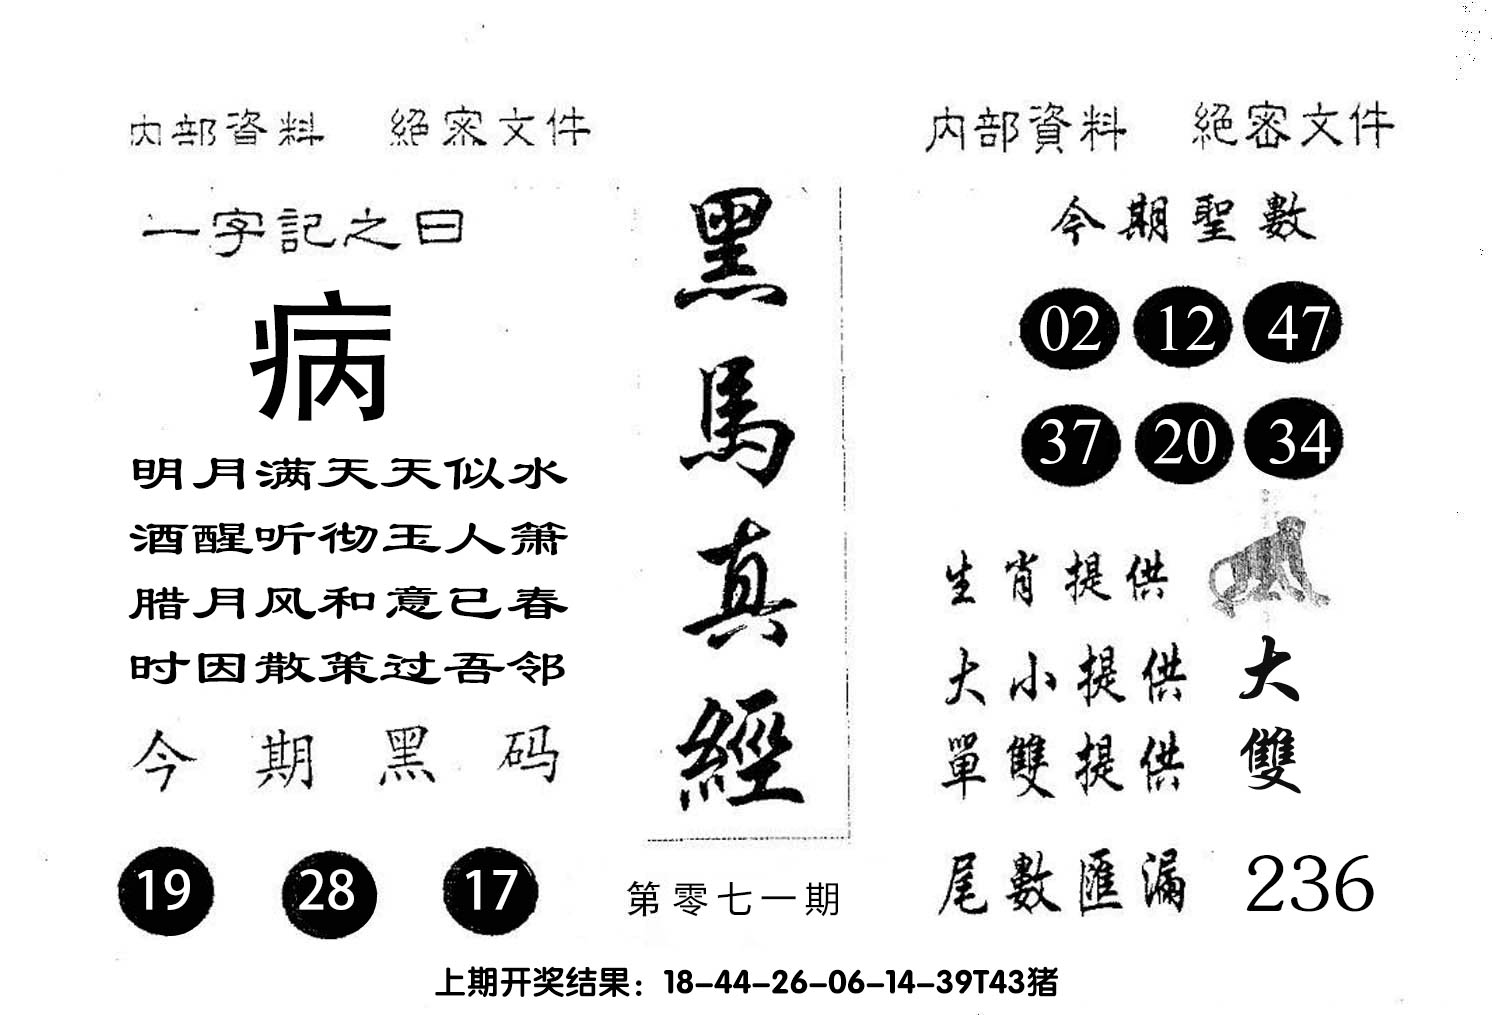 内部資料 絕密文件
一字記之曰
病
明月满天天似水
酒醒听彻玉人箫
腊月风和意已春
时因散策过吾邻
今期黑码
19 28 17
黑馬真經
第零七一期
内部資料 絕密文件
今期聖數
02 12 47
37 20 34
生肖提供
大小提供 大
單雙提供 雙
尾數匯漏 236
上期开奖结果：18-44-26-06-14-39T43猪